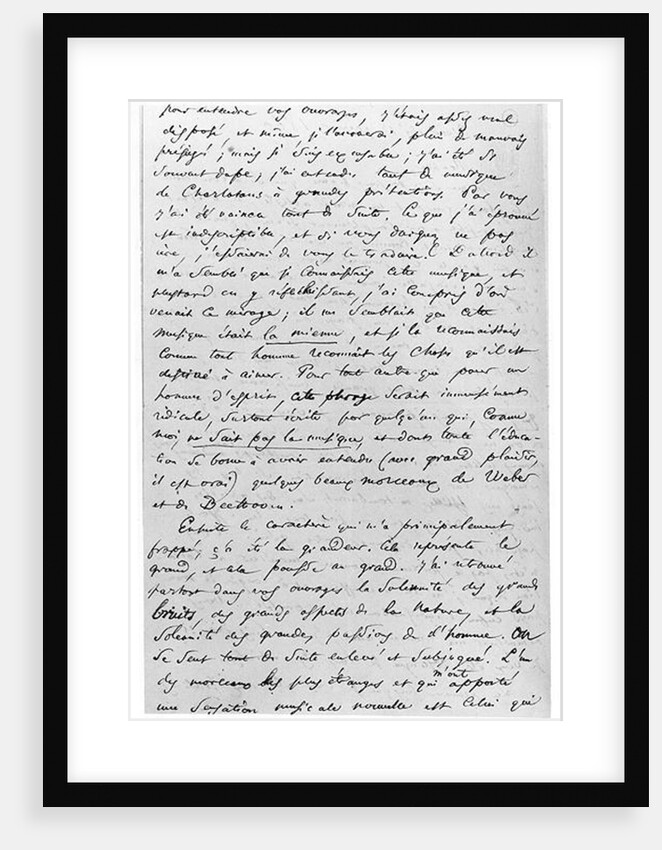 pour entendre vos ouvrages, j'étais assez mal
disposé, et même je l'avouerai, plein de mauvais
préjugés; mais je suis excusable; j'ai été si
souvent dupe; j'ai entendu tant de musique
de Charlatans à grandes prétentions. Par vous
j'ai été vaincu tout de suite. Ce que j'ai éprouvé
est indescriptible, et si vous daignez ne pas
rire, j'essaierai de vous le traduire. D'abord il
m'a semblé que je connaissais cette musique, et
plus tard en y réfléchissant, j'ai compris d'où
venait ce mirage; il me semblait que cette
musique était la mienne, et je la reconnaissais
comme tout homme reconnaît les choses qu'il est
destiné à aimer. Pour tout autre que pour un
homme d'esprit, cette phrase serait immensément
ridicule, surtout écrite par quelqu'un qui, comme
moi, ne sait pas la musique, et dont toute l'éduca-
tion se borne à avoir entendu (avec grand plaisir,
il est vrai) quelques beaux morceaux de Weber
et de Beethoven.
Ensuite le caractère qui m'a principalement
frappé, ç'a été la grandeur. Cela représente le
grand, et cela pousse au grand. J'ai retrouvé
partout dans vos ouvrages la solennité des grands
bruits, des grands aspects de la Nature, et la
solennité des grandes passions de l'homme. On
se sent tout de suite enlevé et subjugué. L'un
des morceaux les plus étranges et qui m'ont apporté
une sensation musicale nouvelle est celui qui